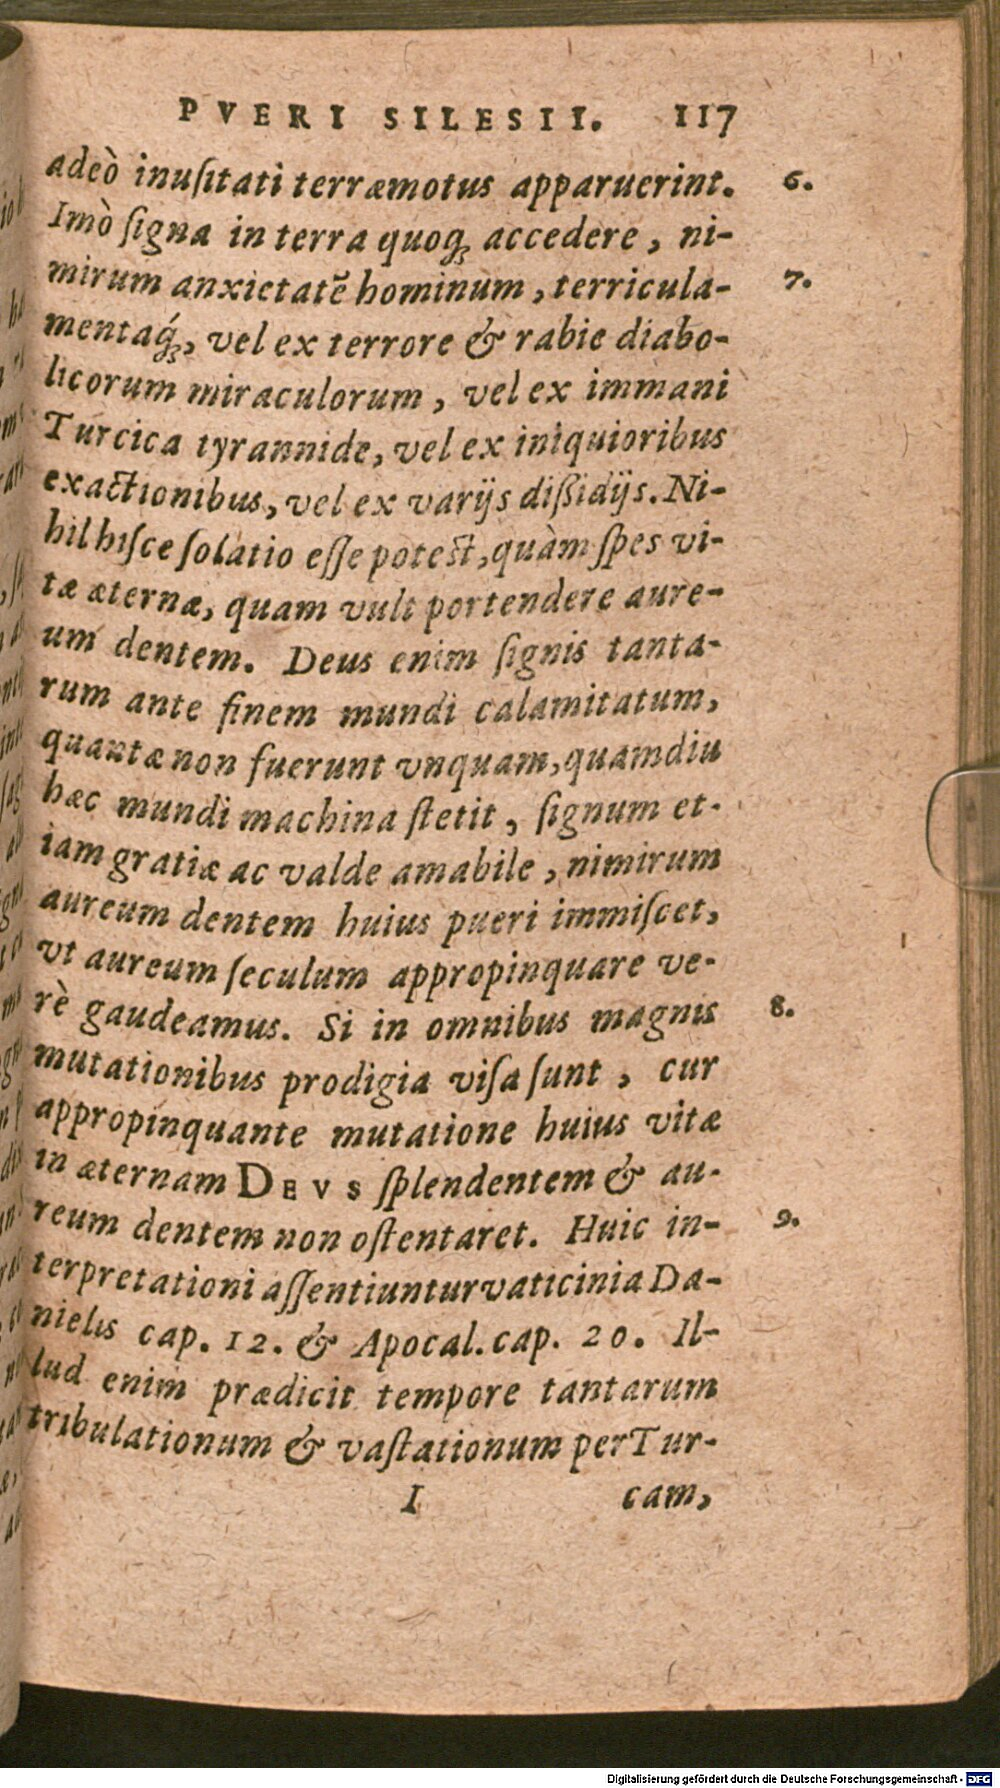 PVERI SILESII. 117
adeò inuſitati terræmotus apparuerint. 6.
Imò ſigna in terra quoq; accedere, ni-
mirum anxietatẽ hominum, terricula- 7.
mentaq́;, vel ex terrore & rabie diabo-
licorum miraculorum, vel ex immani
Turcica tyrannide, vel ex iniquioribus
exactionibus, vel ex varijs dißidijs. Ni-
hil hiſce ſolatio eſſe poteſt, quàm ſpes vi-
tæ æternæ, quam vult portendere aure-
um dentem. Deus enim ſignis tanta-
rum ante finem mundi calamitatum,
quantæ non fuerunt vnquam, quamdiu
hæc mundi machina ſtetit, ſignum et-
iam gratiæ ac valde amabile, nimirum
aureum dentem huius pueri immiſcet,
vt aureum ſeculum appropinquare ve-
rè gaudeamus. Si in omnibus magnis 8.
mutationibus prodigia viſa ſunt, cur
appropinquante mutatione huius vitæ
in æternam DEVS ſplendentem & au-
reum dentem non oſtentaret. Huic in- 9.
terpretationi aſſentiuntur vaticinia Da-
nielis cap. 12. & Apocal. cap. 20. Il-
lud enim prædicit tempore tantarum
tribulationum & vaſtationum per Tur-
I cam,
Digitalisierung gefördert durch die Deutsche Forschungsgemeinschaft - DFG